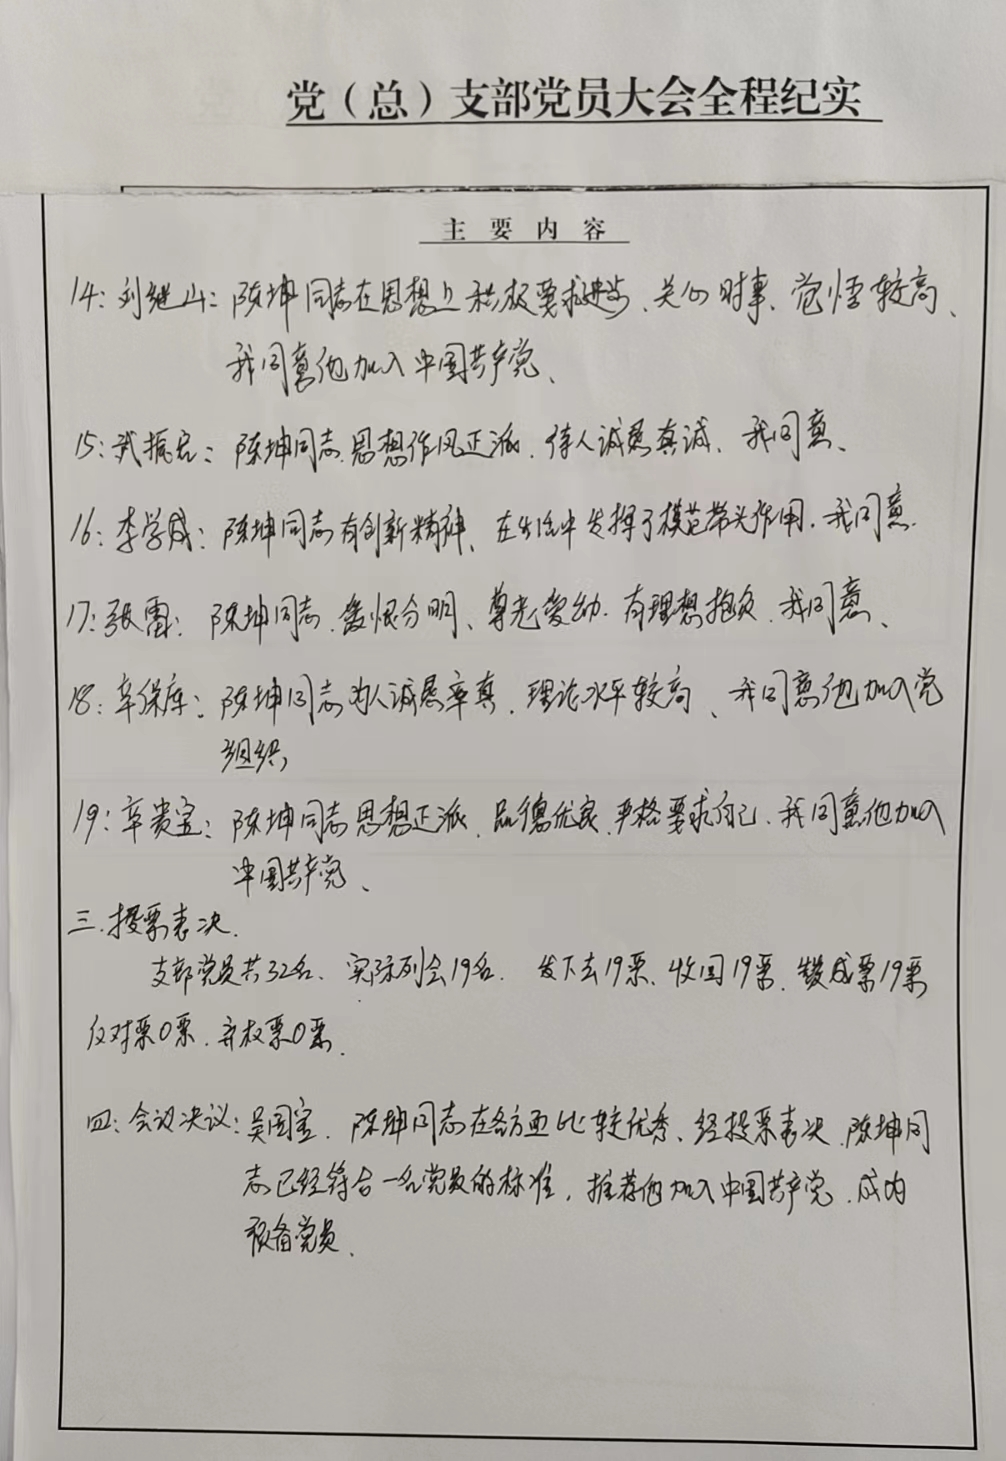 党（总）支部党员大会全程纪实
主 要 内 容
14：刘继山：陈坤同志在思想上积极要求进步、关心时事、觉悟较高、
我同意他加入中国共产党、
15：武振宏：陈坤同志.思想作风正派、待人诚恳真诚、我同意、
16：李学成：陈坤同志有创新精神、在生活中发挥了模范带头作用.我同意.
17：张雷：陈坤同志.爱恨分明、尊老爱幼.有理想抱负.我同意、
18：辛保库：陈坤同志为人诚恳率真、理论水平较高、我同意他加入党
组织
19：辛贵宝：陈坤同志思想正派、品德优良、严格要求自己、我同意他加入
中国共产党、
三.投票表决.
支部党员共32名、实际列会19名.发下去19票、收回19票、赞成票19票
反对票0票.弃权票0票.
四：会议决议：吴国宝.陈坤同志在各方面比较优秀、经投票表决.陈坤同
志已经符合一名党员的标准，推荐他加入中国共产党.成为
预备党员、